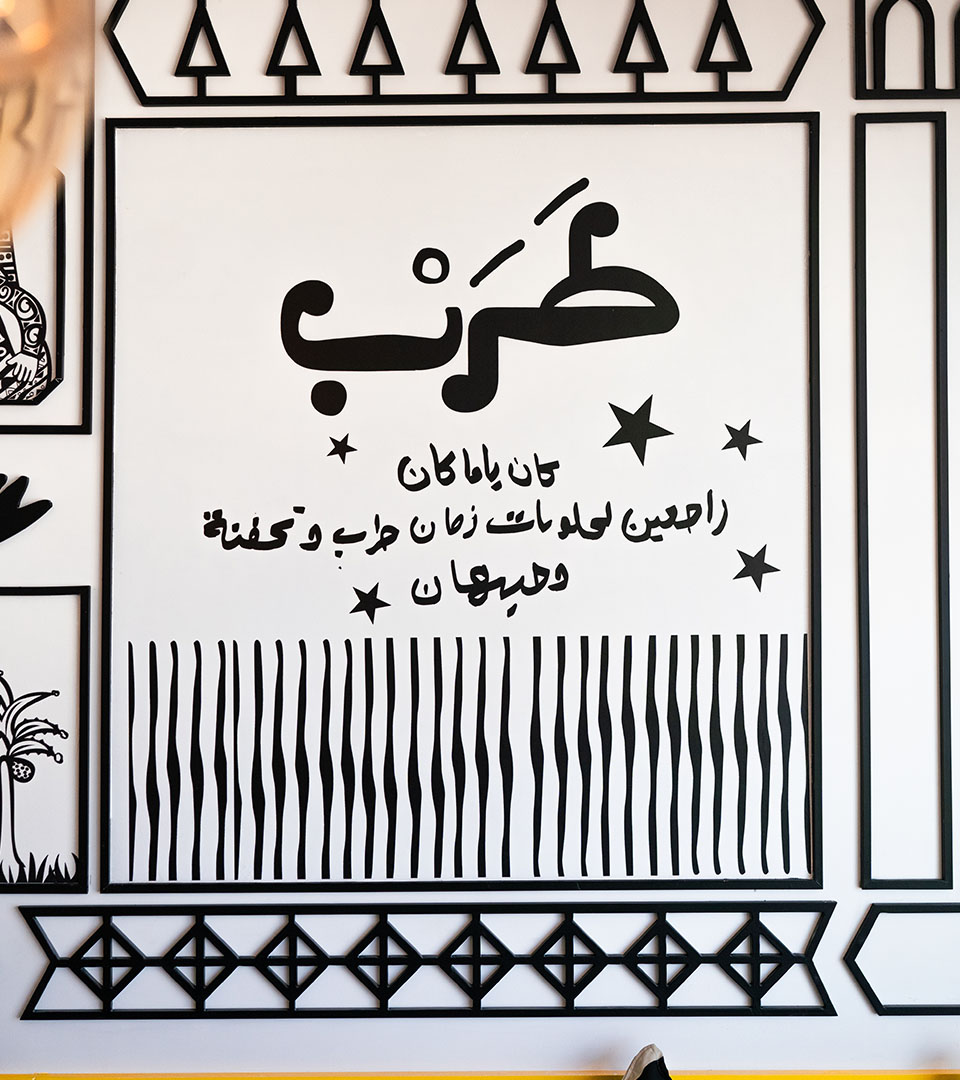 طَرَبْ
كان ياما كان
راجعين لحلويات زمان طرب وتحفنة
وحيهان